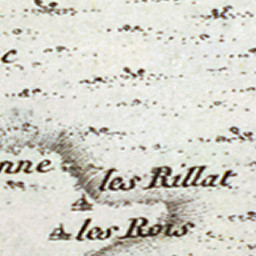 c
nne
les Rillat
les Rois